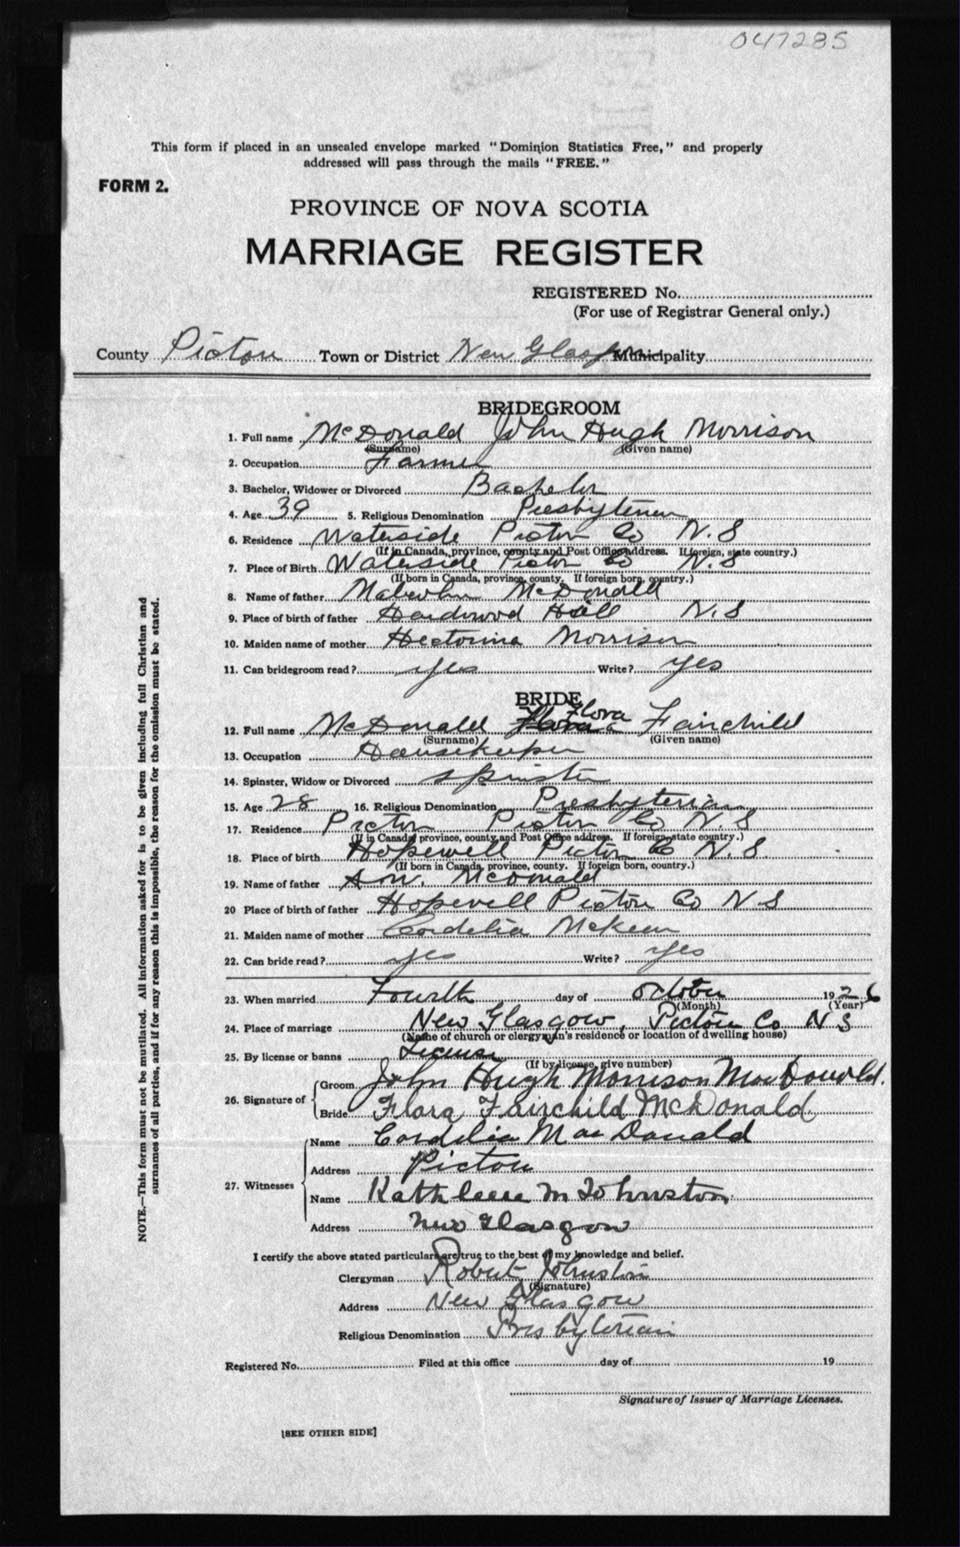 047285
This form if placed in an unsealed envelope marked "Dominion Statistics Free," and properly
addressed will pass through the mails "FREE."
FORM 2.
PROVINCE OF NOVA SCOTIA
MARRIAGE REGISTER
REGISTERED No.
(For use of Registrar General only.)
County Pictou Town or District New Glasgow Municipality
BRIDEGROOM
1. Full name McDonald John Hugh Morrison
(Surname) (Given name)
2. Occupation Farmer
3. Bachelor, Widower or Divorced Bachelor
4. Age 39 5. Religious Denomination Presbyterian
6. Residence Waterside Pictou Co N.S
(If in Canada, province, county and Post Office address. If foreign, state country.)
7. Place of Birth Waterside Pictou Co N.S
(If born in Canada, province, county. If foreign born, country.)
8. Name of father McDonald
9. Place of birth of father Hardwood Hill N.S
10. Maiden name of mother Hectorina Morrison
11. Can bridegroom read? yes Write? yes
BRIDE
Flora
12. Full name McDonald Fairchild
(Surname) (Given name)
13. Occupation Housekeeper
14. Spinster, Widow or Divorced Spinster
15. Age 28 16. Religious Denomination Presbyterian
17. Residence Pictou Pictou Co N.S
(If in Canada, province, county and Post Office address. If foreign, state country.)
18. Place of birth Hopewell Pictou Co N.S.
(If born in Canada, province, county. If foreign born, country.)
19. Name of father McDonald
20 Place of birth of father Hopewell Pictou Co N.S
21. Maiden name of mother Cordelia McKeen
22. Can bride read? yes Write? yes
23. When married Fourth day of October 1926
(Month) (Year)
24. Place of marriage New Glasgow, Pictou Co N S
(Name of church or clergyman's residence or location of dwelling house)
25. By license or banns License
(If by license, give number)
26. Signature of Groom John Hugh Morrison MacDonald.
Bride Flora Fairchild McDonald
27. Witnesses Name Cordelia MacDonald
Address Pictou
Name Kathleen M Johnston
Address New Glasgow
I certify the above stated particulars are true to the best of my knowledge and belief.
Clergyman Robert Johnston
(Signature)
Address New Glasgow
Religious Denomination Presbyterian
Registered No. Filed at this office day of 19
Signature of Issuer of Marriage Licenses.
[SEE OTHER SIDE]
NOTE.—This form must not be mutilated. All information asked for is to be given including full Christian and
surnames of all parties, and if for any reason this is impossible, the reason for the omission must be stated.